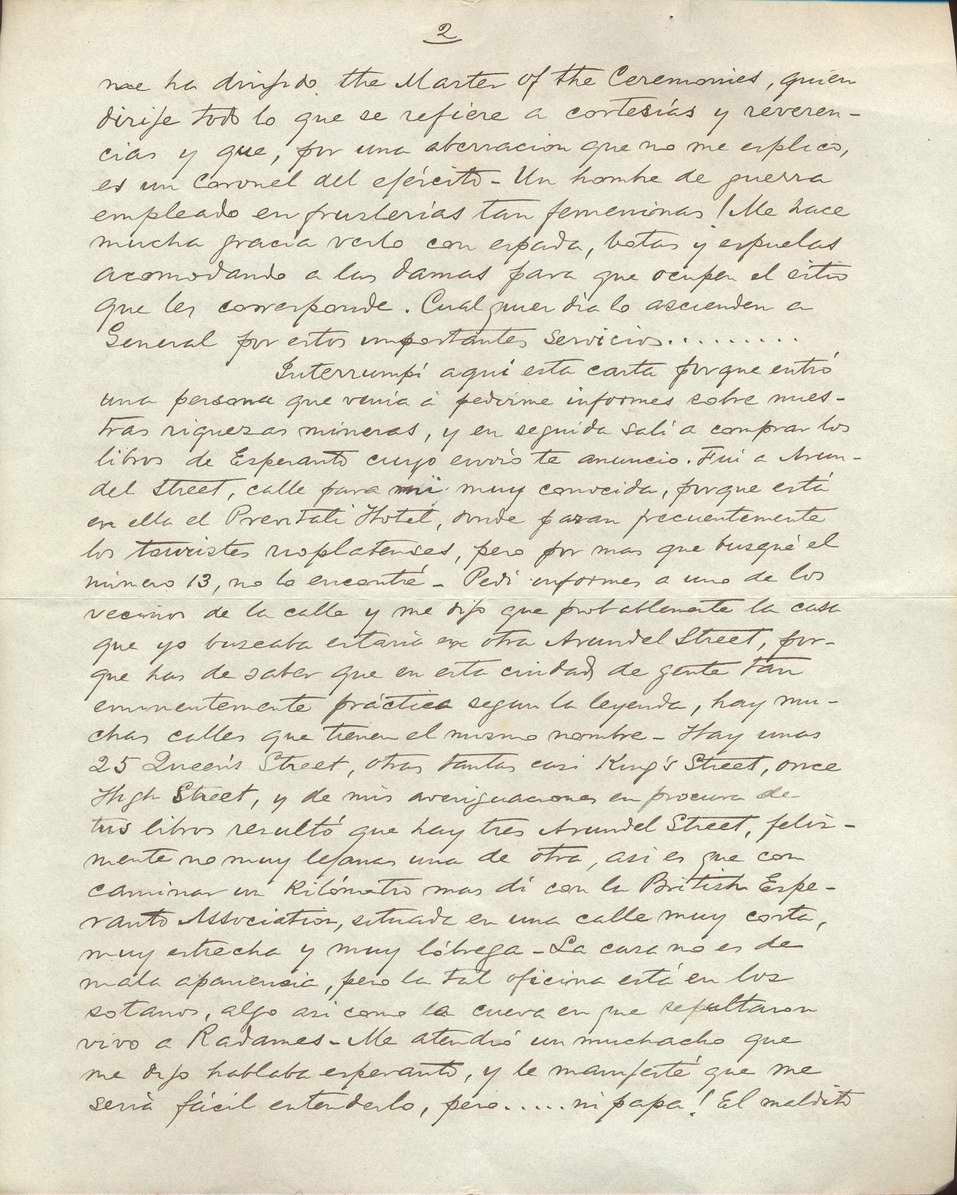 2
me ha dirijido the Marter of the Ceremonies, quien
dirije todo lo que se refiere a cortesías y reveren-
cias y que, por una aberracion que no me esplico,
es un Coronel del ejército - Un hombre de guerra
empleado en fruslerias tan femeninas! Me hace
mucha gracia verlo con espada, botas y espuelas
acomodando a las damas para que ocupen el sitio
que les corresponde. Cualquier dia lo ascienden a
General por estos importantes servicios.........
Interrumpí aqui esta carta porque entró
una persona que venia á pedirme informes sobre nues-
tras riquezas mineras, y en seguida salí a comprar los
libros de Esperanto cuyo envio te anuncio. Fui a Arun-
del Street, calle para mi muy conocida, porque está
en ella el Previtali Hotel, donde paran frecuentemente
los touristes rioplatenses, pero por mas que busqué el
número 13, no lo encontré - Pedi informes a uno de los
vecinos de la calle y me dijo que probablemente la casa
que yo buscaba estaria en otra Arundel Street, por-
que has de saber que en esta ciudad de gente tan
eminentemente práctica segun la leyenda, hay mu-
chas calles que tienen el mismo nombre - Hay unas
25 Queen's Street, otras tantas casi King's Street, once
High Street, y de mis averiguaciones en procura de
tus libros resultó que hay tres Arundel Street, feliz-
mente no muy lejanas una de otra, asi es que con
caminar un Kilómetro mas di con la British Espe-
ranto Association, situada en una calle muy corta,
muy estrecha y muy lóbrega - La casa no es de
mala apariencia, pero la tal oficina está en los
sotanos, algo asi como la cueva en que sepultaron
vivo a Radames - Me atendió un muchacho que
me dijo hablaba esperanto, y le manifesté que me
seria fácil entenderlo, pero..... ni papa! El maldito